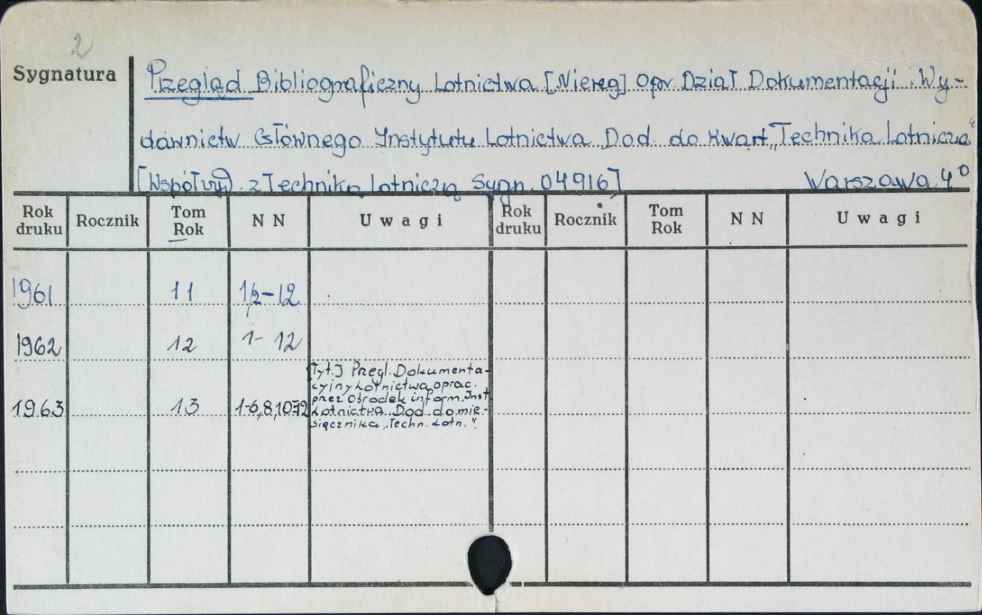 2
Sygnatura
Przegląd Bibliograficzny Lotnictwa [Niereg] Opr Dział Dokumentacji. Wy-
dawnictw Głównego Instytutu Lotnictwa Dod. do kwart. „Technika Lotnicza"
[Współwyd. z Techniką Lotniczą Sygn. 04916] Warszawa 4°
Rok druku Rocznik Tom Rok N N Uwagi Rok druku Rocznik Tom Rok N N Uwagi
1961 11 1/2-12
1962 12 1- 12
1963 13 1-6,8,10-12
[Tyt.] Przegl. Dokumenta-
cyjny Lotnictwa oprac.
przez Ośrodek inform. Inst
Lotnictwa Dod. do mie-
sięcznika „Techn. Lotn."